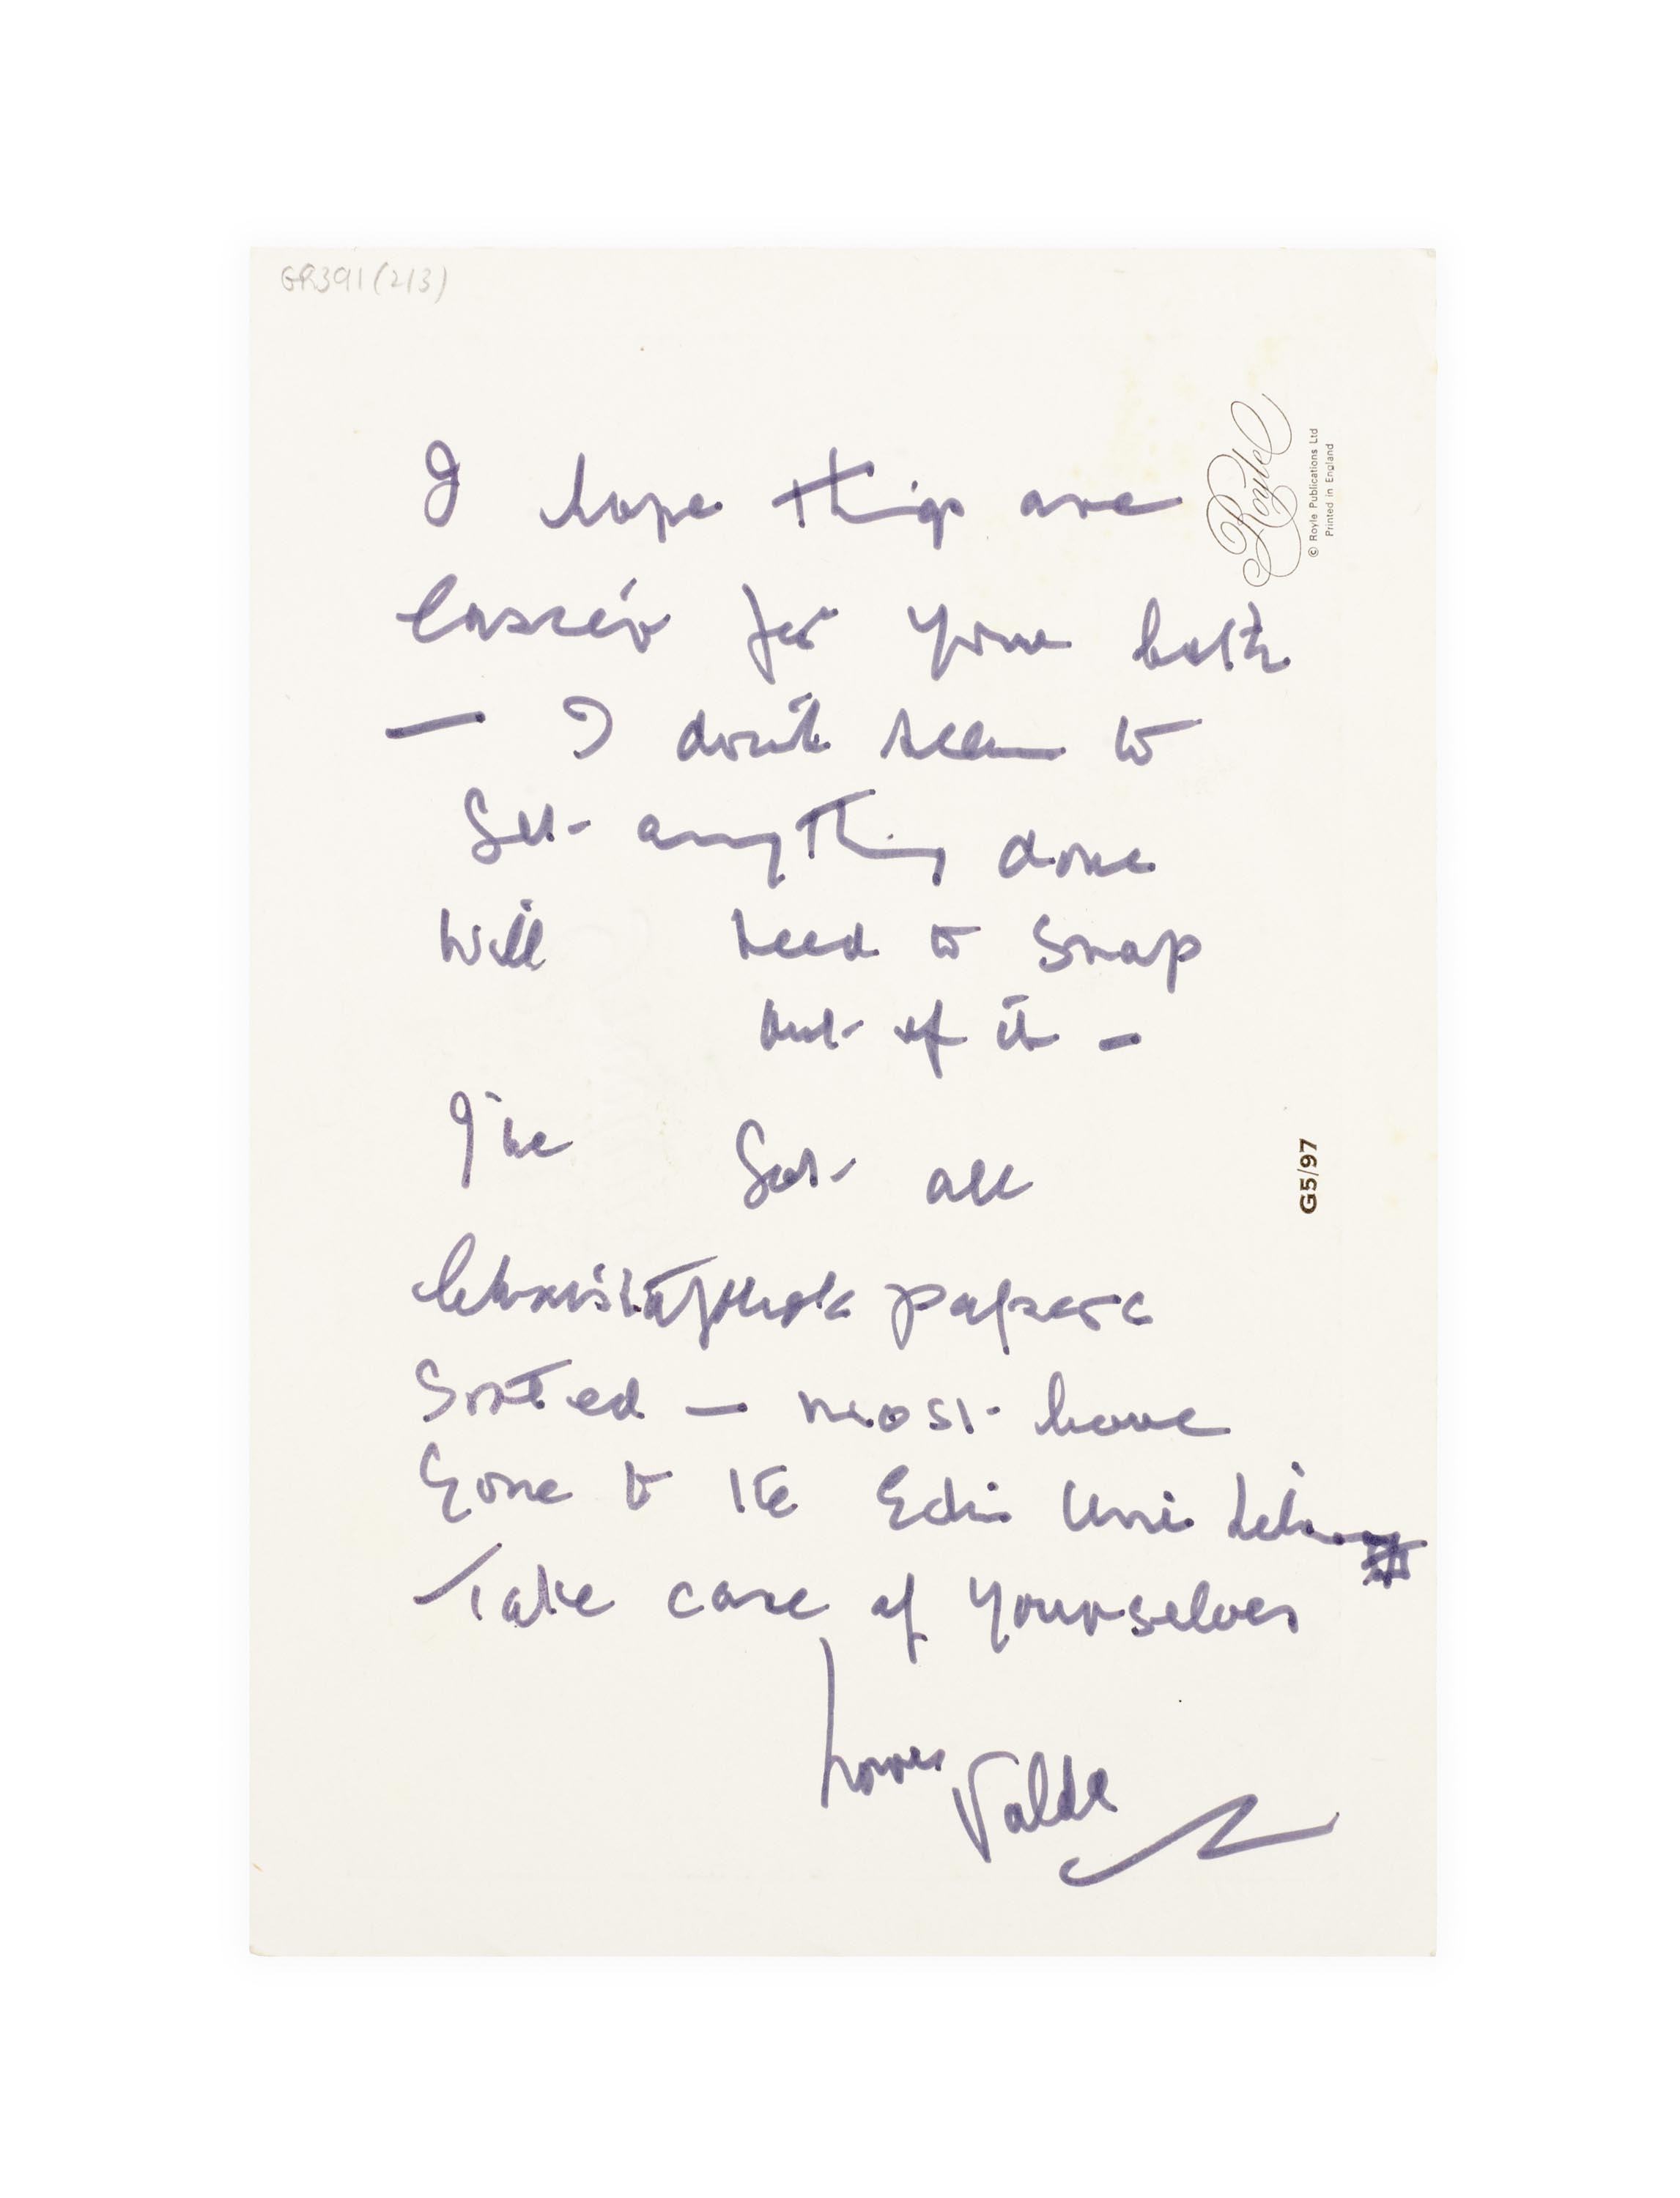 GR391(2/3)
I hope things are
easier for you both
— I don't seem to
get anything done
will need to snap
out of it —
I've got all
Christopher's papers
sorted — most have
gone to the Edin Uni Library
Take care of yourselves
Love Valda
Royle
© Royle Publications Ltd
Printed in England
G5/97